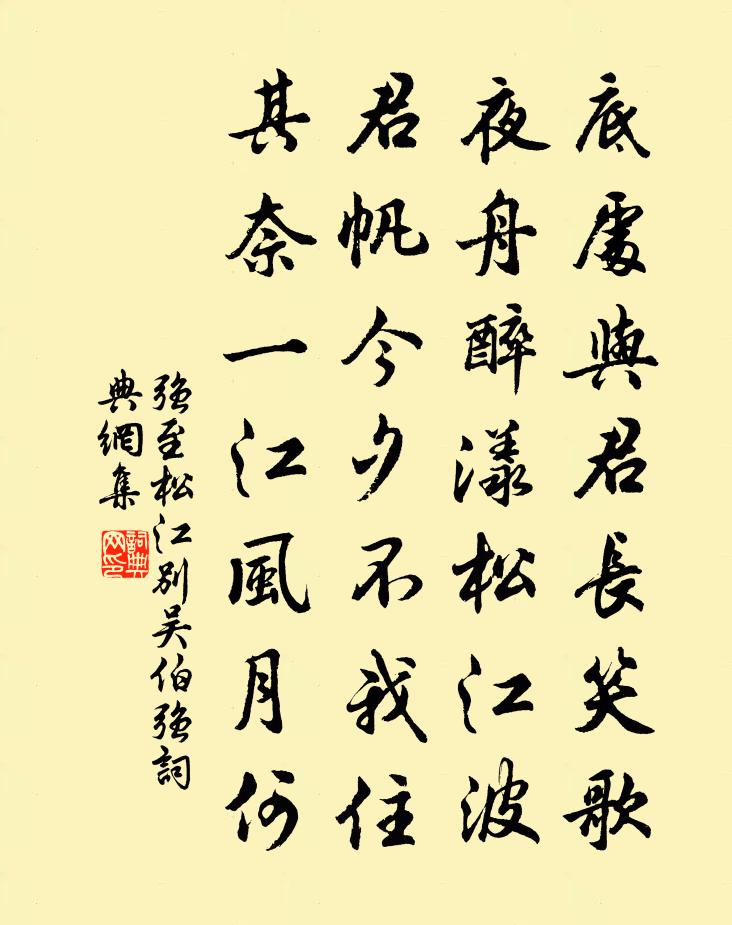 底處與君長笑歌
夜舟醉漾松江波
君帆今夕不我住
其奈一江風月何
強至松江別吳伯強詞
典網集
詞典
网印